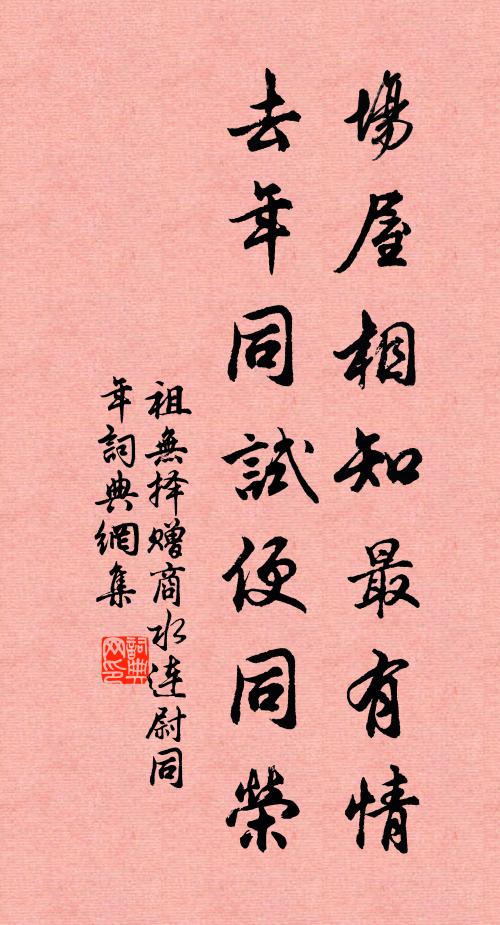 場屋相知最有情
去年同試便同榮
祖無择赠商水連尉同
年詞典網集
詞典网印